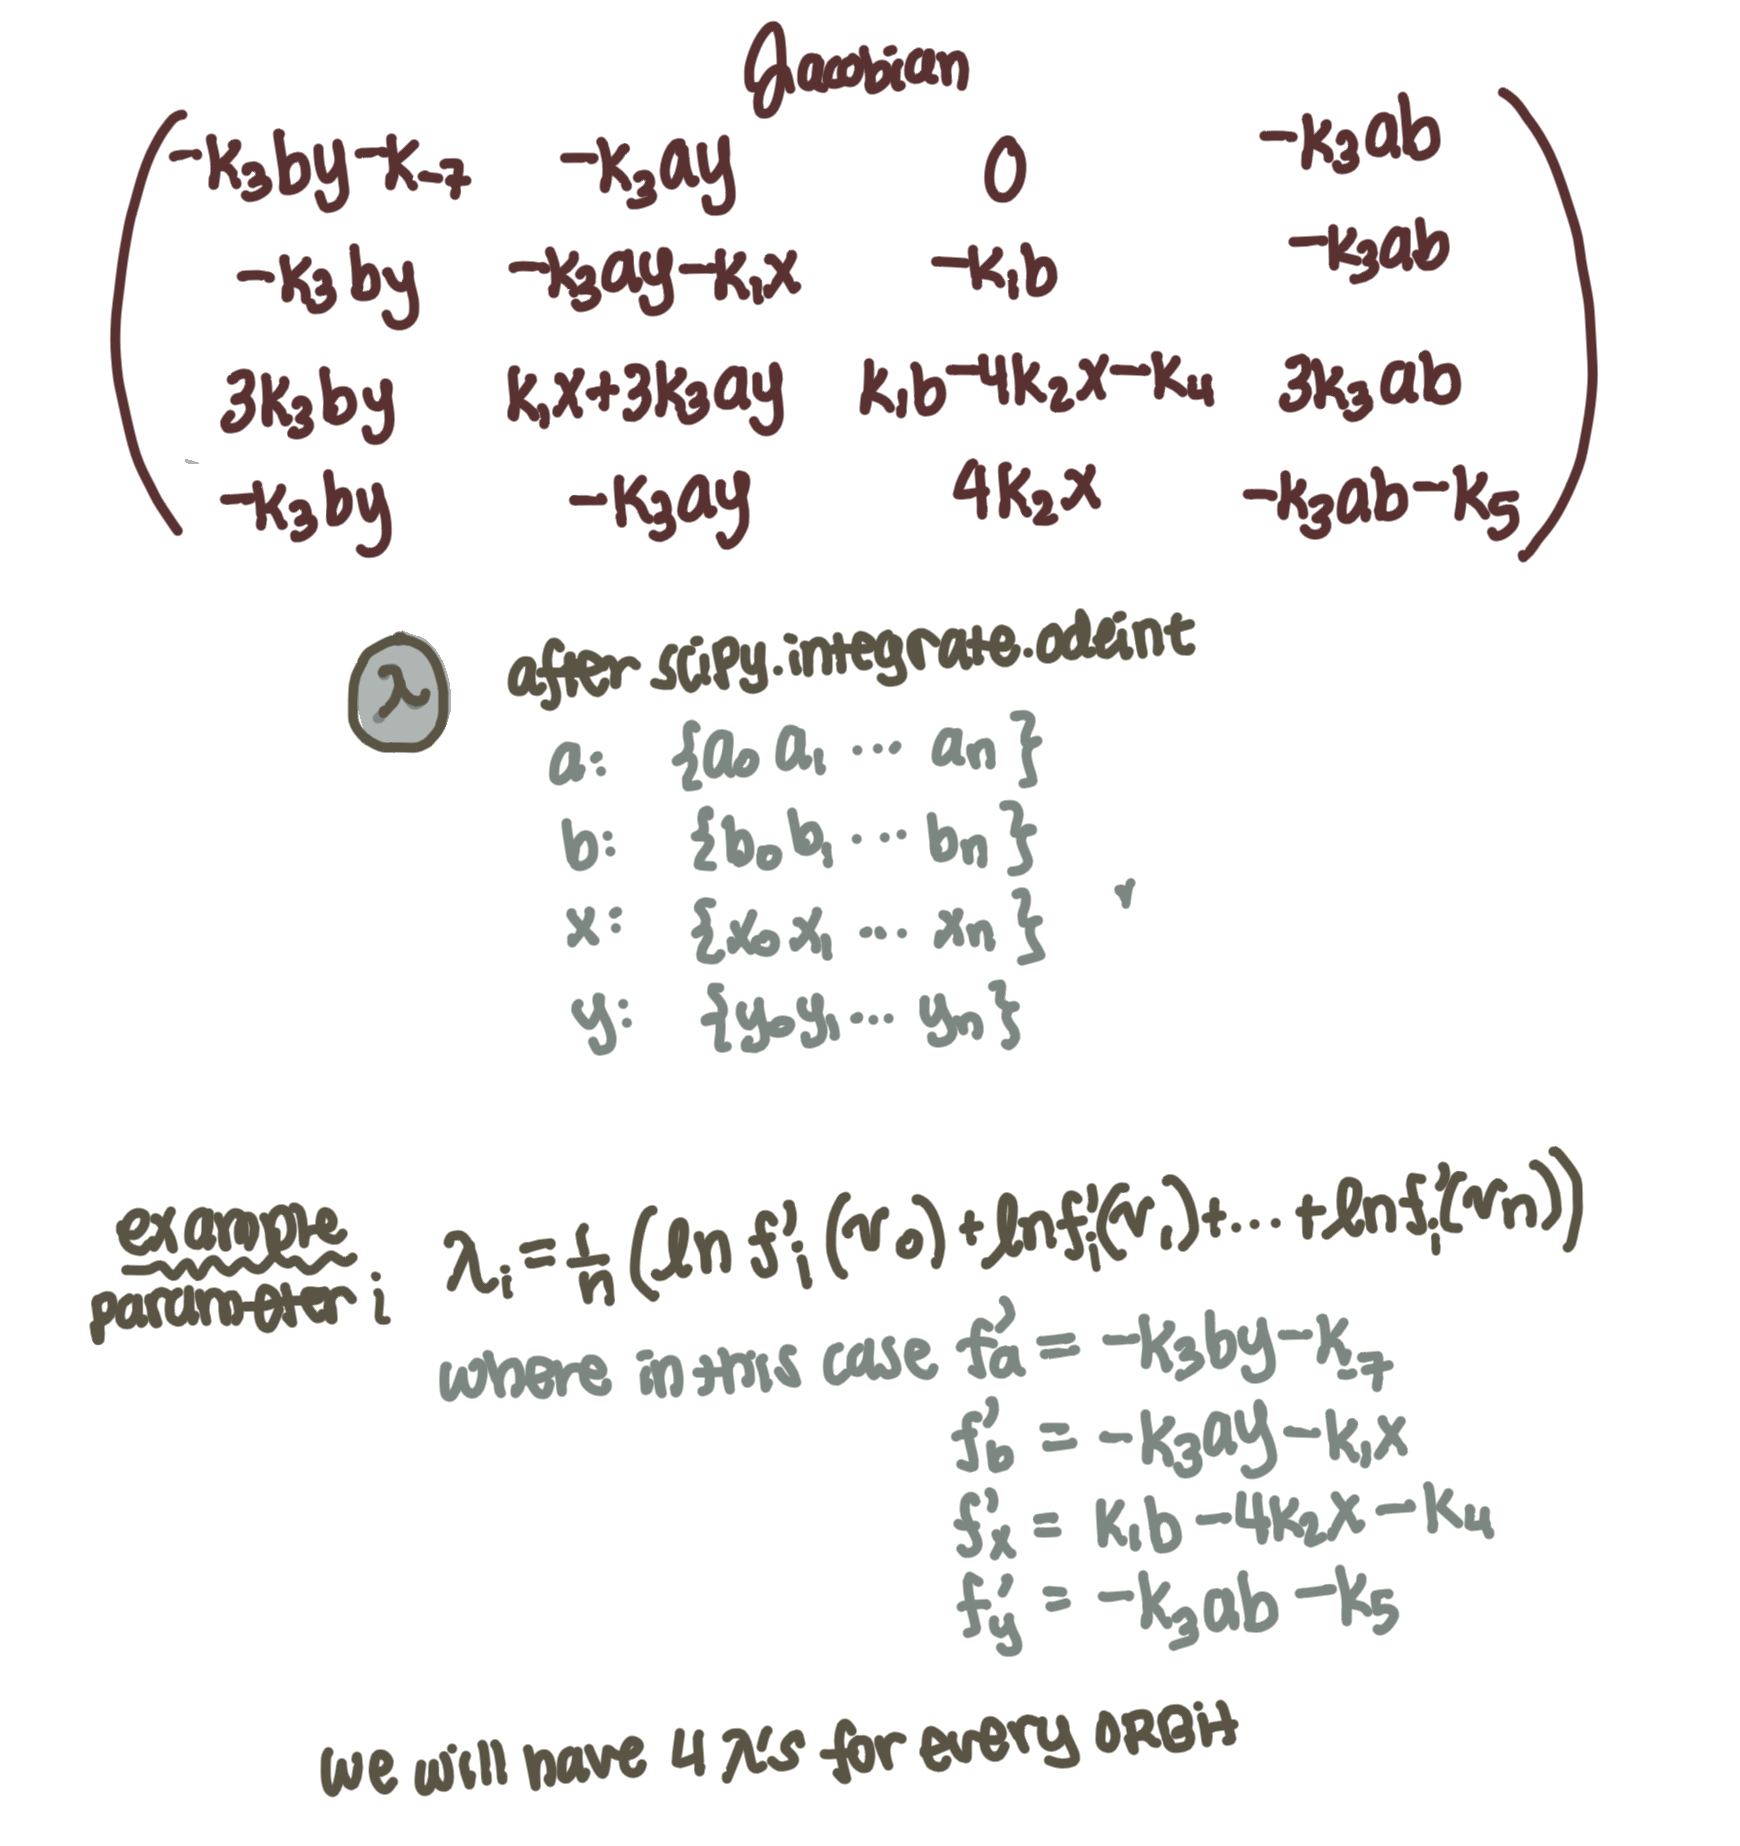 Jacobian
-k₃by-k₋₇ -k₃ay 0 -k₃ab
-k₃by -k₃ay-k₁x -k₁b -k₃ab
3k₃by k₁x+3k₃ay k₁b-4k₂x-k₄ 3k₃ab
-k₃by -k₃ay 4k₂x -k₃ab-k₅
λ after scipy.integrate.odeint
a: {a₀ a₁ ... aₙ}
b: {b₀ b₁ ... bₙ}
x: {x₀ x₁ ... xₙ}
r
y: {y₀ y₁ ... yₙ}
example
parameter i
λᵢ = 1/n (ln f'ᵢ(r₀) + ln f'ᵢ(r₁) + ... + ln f'ᵢ(rₙ))
where in this case f'a = -k₃by-k₋₇
f'b = -k₃ay-k₁x
f'x = k₁b-4k₂x-k₄
f'y = -k₃ab-k₅
we will have 4 λ's for every ORBit